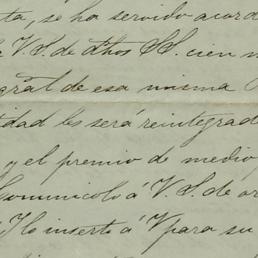 ta, se ha servido acord
V.S. de dhos SS. cien m
gral de esa misma
idad les será reintegrad
y el premio de medio
Comunícolo á V.S. de or
Y lo inserto á V para su